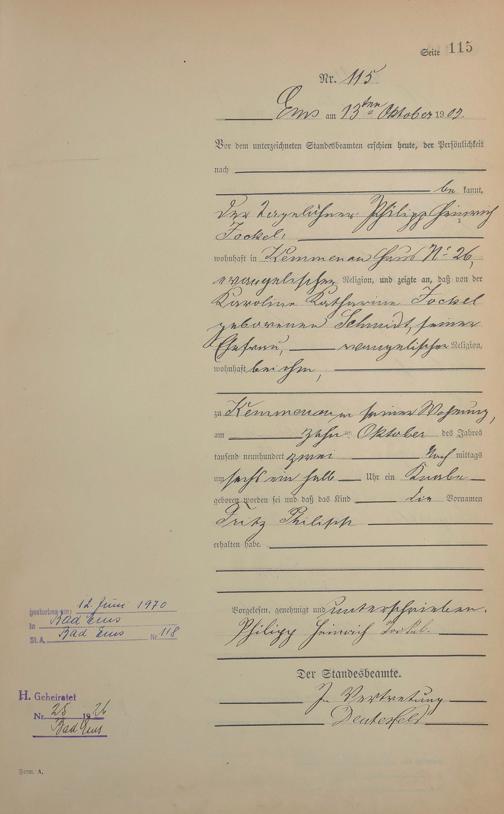 Seite 115
Nr. 115
Ems am 13ten Oktober 1902.
Vor dem unterzeichneten Standesbeamten erschien heute, der Persönlichkeit
nach
be kannt,
der Tagelöhner Philipp Heinrich
Jockel
wohnhaft in Kemmenau Haus No 26,
evangelischer Religion, und zeigte an, daß von der
Karoline Katharine Jockel
geborenen Schmidt, seiner
Ehefrau, evangelischer Religion,
wohnhaft bei ihm,
zu Kemmenau in seiner Wohnung,
am zehn Oktober des Jahres
tausend neunhundert zwei Nach mittags
um sechs ein halb Uhr ein Knabe
geboren worden sei und daß das Kind die Vornamen
Fritz Philipp
erhalten habe.
Vorgelesen, genehmigt und unterschrieben.
Philipp Heinrich Jockel.
Der Standesbeamte.
In Vertretung
gestorben am: 12. Juni 1970
in Bad Ems
St.A. Bad Ems Nr. 118
H. Geheiratet
Nr. 25 1926
Bad Ems
Form. A.